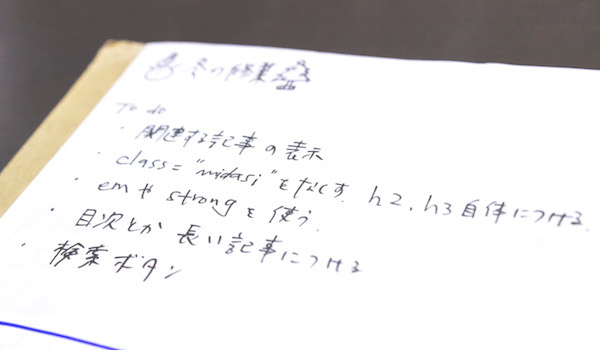 冬の編集
To do
・関連する記事の表示
・class="midasi"をなくす. h2, h3自体につける.
・emやstrongを使う.
・目次とか長い記事につける
・検索ボタン